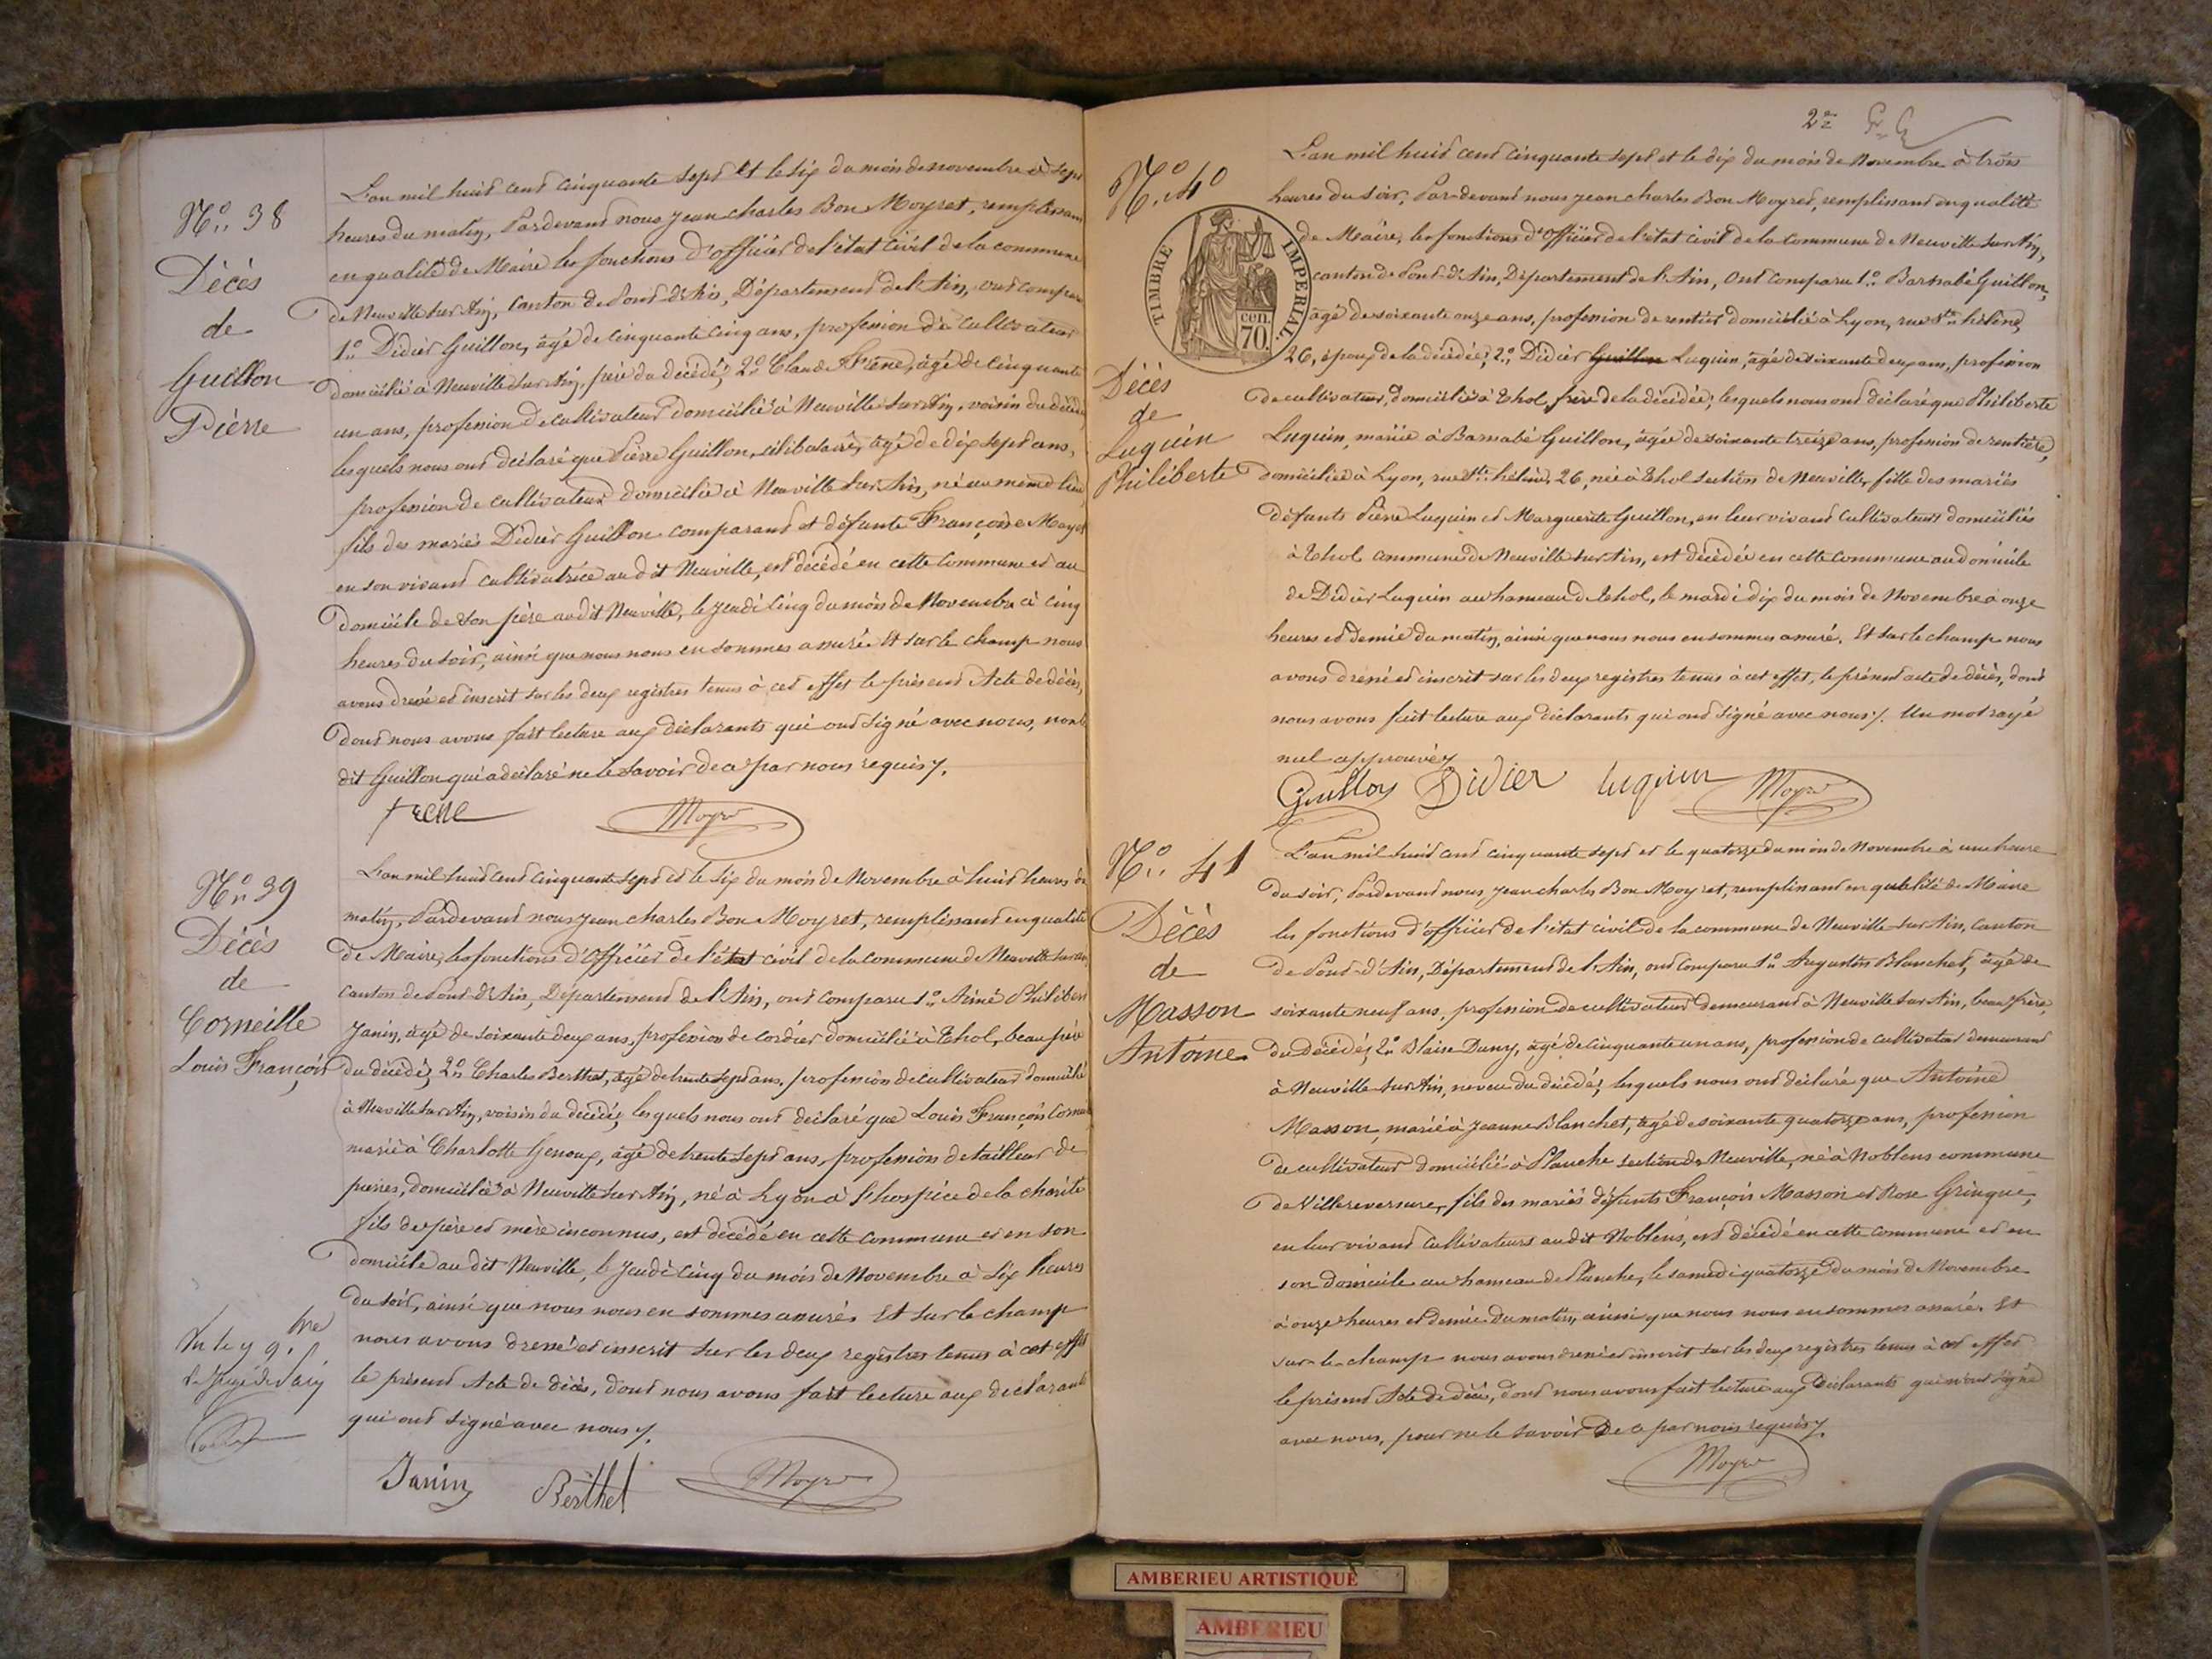 N.o 38
Décès
de
Guillon
Pierre
L'an mil huit cent cinquante sept et le six du mois de novembre à sept
heures du matin, Pardevant nous Jean Charles Bon Moyret, remplissant
en qualité de Maire les fonctions d'officier de l'état civil de la commune
de Neuville sur Ain, Canton de Pont d'Ain, Département de l'Ain, ont comparu
1.o Didier Guillon, âgé de cinquante cinq ans, profession de cultivateur
domicilié à Neuville sur Ain, père du décédé, 2.o Claude Frène, âgé de cinquante
un ans, profession de cultivateur domicilié à Neuville sur Ain, voisin du décédé,
lesquels nous ont déclaré que Pierre Guillon, célibataire, âgé de dix sept ans,
profession de cultivateur domicilié à Neuville sur Ain, né au même lieu
fils des mariés Didier Guillon comparant et défunte Françoise Moyet
en son vivant cultivatrice au dit Neuville, est décédé en cette Commune et au
Domicile de son père au dit Neuville, le Jeudi cinq du mois de Novembre à cinq
heures du soir, ainsi que nous nous en sommes assuré. Et sur le champ nous
avons dressé et inscrit sur les deux registres tenus à cet effet le présent Acte de décès,
dont nous avons fait lecture aux déclarants qui ont signé avec nous, non le
dit Guillon qui a déclaré ne le savoir de ce par nous requis.
frene Moyret
N.o 39
Décès
de
Corneille
Louis François
L'an mil huit cent cinquante sept et le six du mois de Novembre à huit heures du
matin, Pardevant nous Jean Charles Bon Moyret, remplissant en qualité
de Maire, les fonctions d'Officier de l'état civil de la commune de Neuville sur Ain,
Canton de Pont d'Ain, Département de l'Ain, ont comparu 1.o Aimé Philibert
Janin, âgé de soixante deux ans, profession de cordier domicilié à Thol, beau père
du décédé, 2.o Charles Berthet, âgé de trente sept ans, profession de cultivateur domicilié
à Neuville sur Ain, voisin du décédé, lesquels nous ont déclaré que Louis François Corneille
marié à Charlotte Genoux, âgé de trente sept ans, profession de tailleur de
pierres, domicilié à Neuville sur Ain, né à Lyon à l'hospice de la charité
fils de père et mère inconnus, est décédé en cette commune et en son
domicile au dit Neuville, le Jeudi cinq du mois de Novembre à six heures
du soir, ainsi que nous nous en sommes assuré. Et sur le champ
nous avons dressé et inscrit sur les deux registres tenus à cet effet
le présent Acte de décès, dont nous avons fait lecture aux déclarants
qui ont signé avec nous.
Janin Berthet Moyret
2e
N.o 40
TIMBRE IMPERIAL.
70. cen.
Décès
de
Luquin
Philiberte
L'an mil huit cent cinquante sept et le dix du mois de Novembre à trois
heures du soir, Par-devant nous Jean Charles Bon Moyret, remplissant en qualité
de Maire, les fonctions d'Officier de l'état civil de la Commune de Neuville sur Ain,
canton de Pont-d'Ain, Département de l'Ain, Ont comparu 1.o Barnabé Guillon,
âgé de soixante onze ans, profession de rentier domicilié à Lyon, rue Ste hélène,
26, époux de la décédée; 2.o Didier Guillon Luquin, âgé de soixante deux ans, profession
de cultivateur, domicilié à Thol, frère de la décédée; lesquels nous ont déclaré que Philiberte
Luquin, mariée à Barnabé Guillon, âgée de soixante treize ans, profession de rentière,
domiciliée à Lyon, rue Ste hélène, 26, née à Thol section de Neuville, fille des mariés
défunts Pierre Luquin et Marguerite Guillon, en leur vivant Cultivateurs domiciliés
à Thol commune de Neuville sur Ain, est décédée en cette commune au domicile
de Didier Luquin au hameau de Thol, le mardi dix du mois de Novembre à onze
heures et demie du matin, ainsi que nous nous en sommes assuré. Et sur le champ nous
avons dressé et inscrit sur les deux registres tenus à cet effet, le présent acte de décès, dont
nous avons fait lecture aux déclarants qui ont signé avec nous. Un mot rayé
nul approuvé
Guillon Didier luquin Moyret
N.o 41
Décès
de
Masson
Antoine
L'an mil huit cent cinquante sept et le quatorze du mois de Novembre à une heure
du soir, Pardevant nous, Jean Charles Bon Moyret, remplissant en qualité de Maire
les fonctions d'officier de l'état civil de la commune de Neuville sur Ain, canton
de Pont-d'Ain, Département de l'Ain, ont comparu 1.o Augustin Blanchet, âgé de
soixante neuf ans, profession de cultivateur demeurant à Neuville sur Ain, beau frère,
du décédé; 2.o Blaise Duny, âgé de cinquante un ans, profession de cultivateur demeurant
à Neuville sur Ain, neveu du décédé; lesquels nous ont déclaré que Antoine
Masson, marié à Jeanne Blanchet, âgé de soixante quatorze ans, profession
de cultivateur domicilié à Planche section de Neuville, né à Noblens commune
de Villereversure, fils des mariés défunts François Masson et Rose Gringue,
en leur vivant Cultivateurs au dit Noblens, est décédé en cette commune et en
son domicile au hameau de Planche, le samedi quatorze du mois de Novembre
à onze heures et demie du matin, ainsi que nous nous en sommes assuré. Et
sur-le-champ nous avons dressé et inscrit sur les deux registres tenus à cet effet
le présent Acte de décès, dont nous avons fait lecture aux Déclarants qui n'ont signé
avec nous, pour ne le savoir De ce par nous requis.
Moyret
AMBERIEU ARTISTIQUE
AMBERIEU